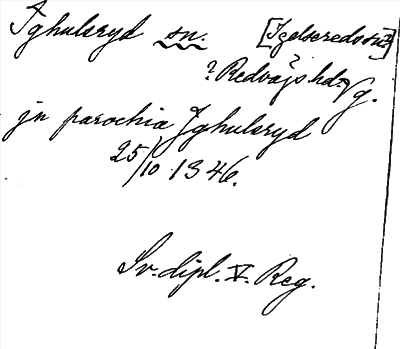 Ighulsryd sn. [Igelseredssn]
? Redvägs hd. Vg.
jn parochia Jghulsryd
25/10 1346.
Sv. dipl. V. Reg.